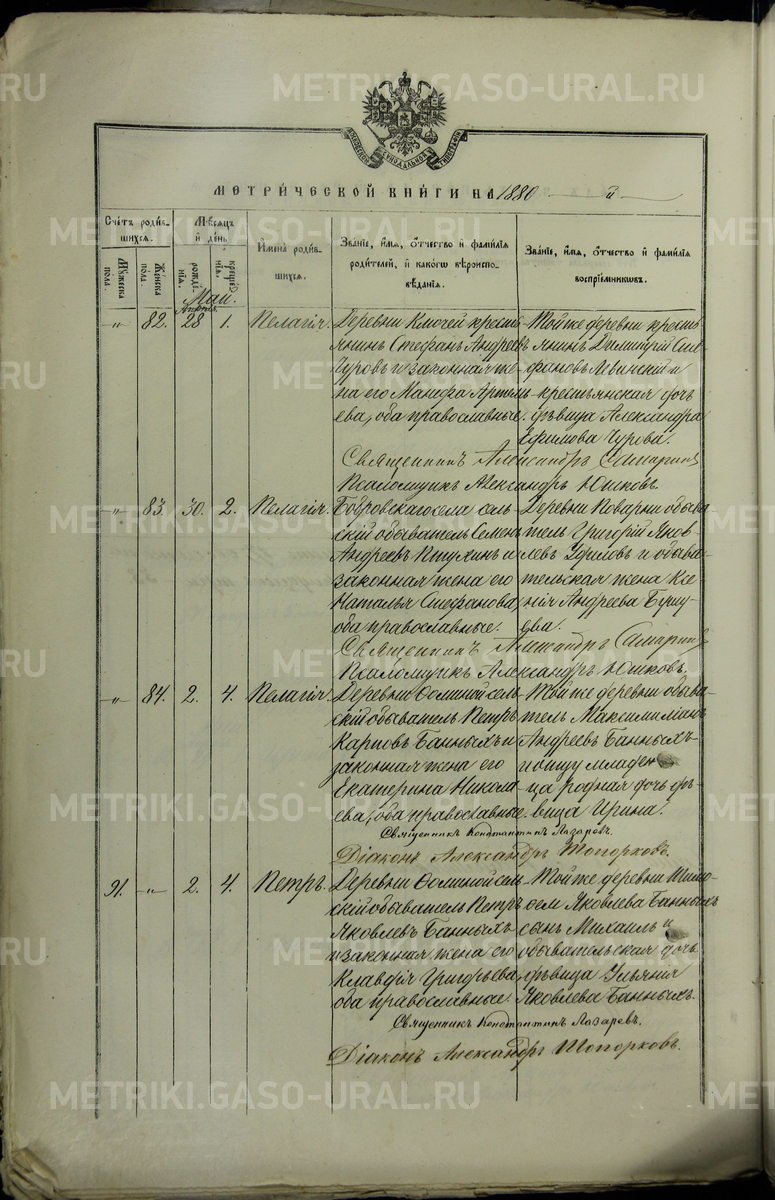 METRIKI.GASO-URAL.RU
МОСКОВСКОЙ СѴНОДАЛЬНОЙ ТИПОГРАФІИ
МЕТРИ́ЧЕСКОЙ КНИ́ГИ НА 1880 й
Счётъ роди́вшихся.
Мѣ́сяцъ и҆ де́нь
И҆мена̀ роди́вшихся.
Зва́нїе, и҆́мя, ѻ҆́тчество и҆ фами́лїя роди́телей, и҆ како́гѡ вѣроисповѣ́данїя.
Зва́нїе, и҆́мя, ѻ҆́тчество и҆ фами́лїя воспрїе́мникѡвъ.
Мꙋ́жеска по́ла.
Же́нска по́ла.
рожде́нїя.
креще́нїя.
Маи.
Апрѣля.
-„- 82. 28 1. Пелагія.
Деревни Ключей кресть
янинъ Стефанъ Андреевъ
Чуровъ и законная же-
на его Манефа Артемь
ева, оба православные.
Той же деревни кресть
янинъ Димитрій Сте
фановъ Левинскій и
крестьянская дочь
дѣвица Александра
Ефимова Чурова.
Священникъ Александръ Самаринъ
Псаломщикъ Александръ Юшковъ.
-„- 83. 30. 2. Пелагія.
Бобровскаго села сель
скій обыватель Семенъ
Андреевъ Пѣтухинъ и
законная жена его
Наталья Стефанова,
оба православные.
Деревни Поварни обыва
тель Григорій Яков
левъ Уфимовъ и обыва-
тельская жена Ксе
нія Андреева
Священникъ Александръ Самаринъ
Псаломщикъ Александръ Юшковъ.
-„- 84. 2. 4. Пелагія.
Деревни Осминой сель
скій обыватель Петръ
Карповъ Банныхъ и
законная жена его
Екатерина Никола
ева, оба православные.
Той же деревни обыва
тель Максимиліанъ
Андреевъ Банныхъ
и отцу младен
ца родная дочь дѣ-
вица Ирина.
Священникъ Константинъ Лазаревъ.
Діаконъ Александръ Топорковъ.
91. -„- 2. 4. Петръ.
Деревни Осминой сель
скій обыватель Петръ
Яковлевъ Банныхъ
и законная жена его
Клавдія Григорьева,
оба православные.
Той же деревни Тимо
ѳея Яковлева Банныхъ
сынъ Михаилъ и
обывательская дочь
дѣвица Ульянія
Яковлева Банныхъ.
Священникъ Константинъ Лазаревъ.
Діаконъ Александръ Топорковъ.